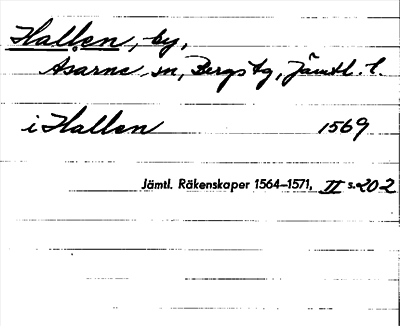 Hallen, by,
Åsarne sn, Bergs tg, Jämtl. l.
i Hallen 1569
Jämtl. Räkenskaper 1564–1571, II s. 202